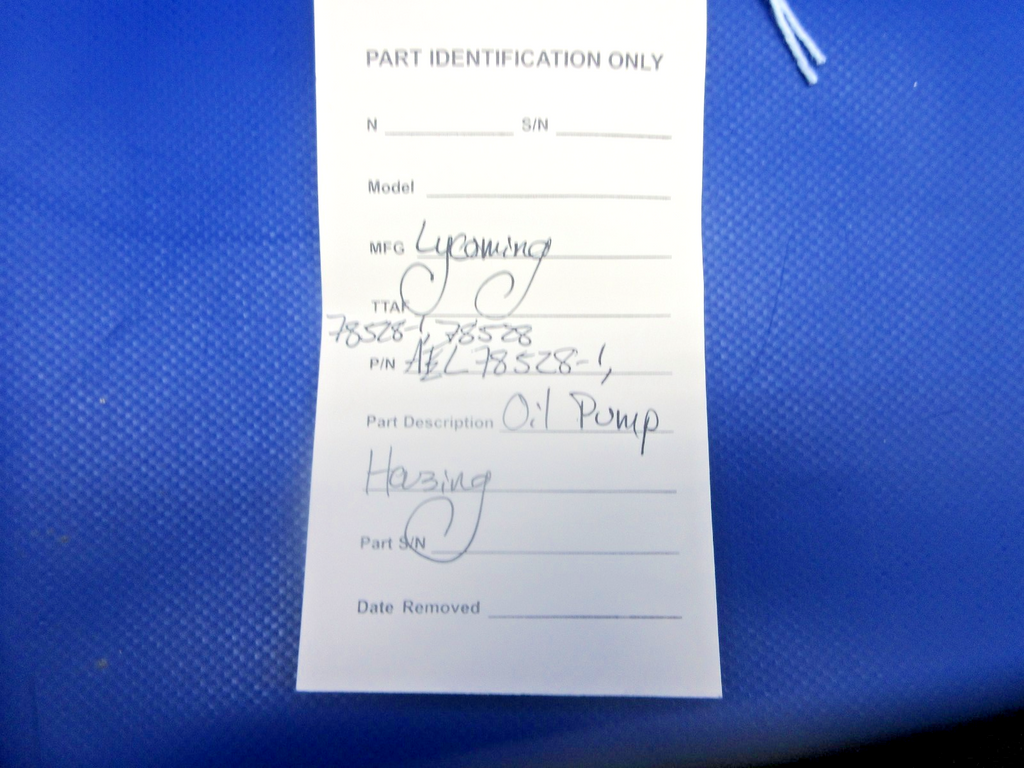 PART IDENTIFICATION ONLY
N S/N
Model
MFG Lycoming
TTAF
78528-1, 78528
P/N AEL78528-1,
Part Description Oil Pump
Hozing
Part S/N
Date Removed